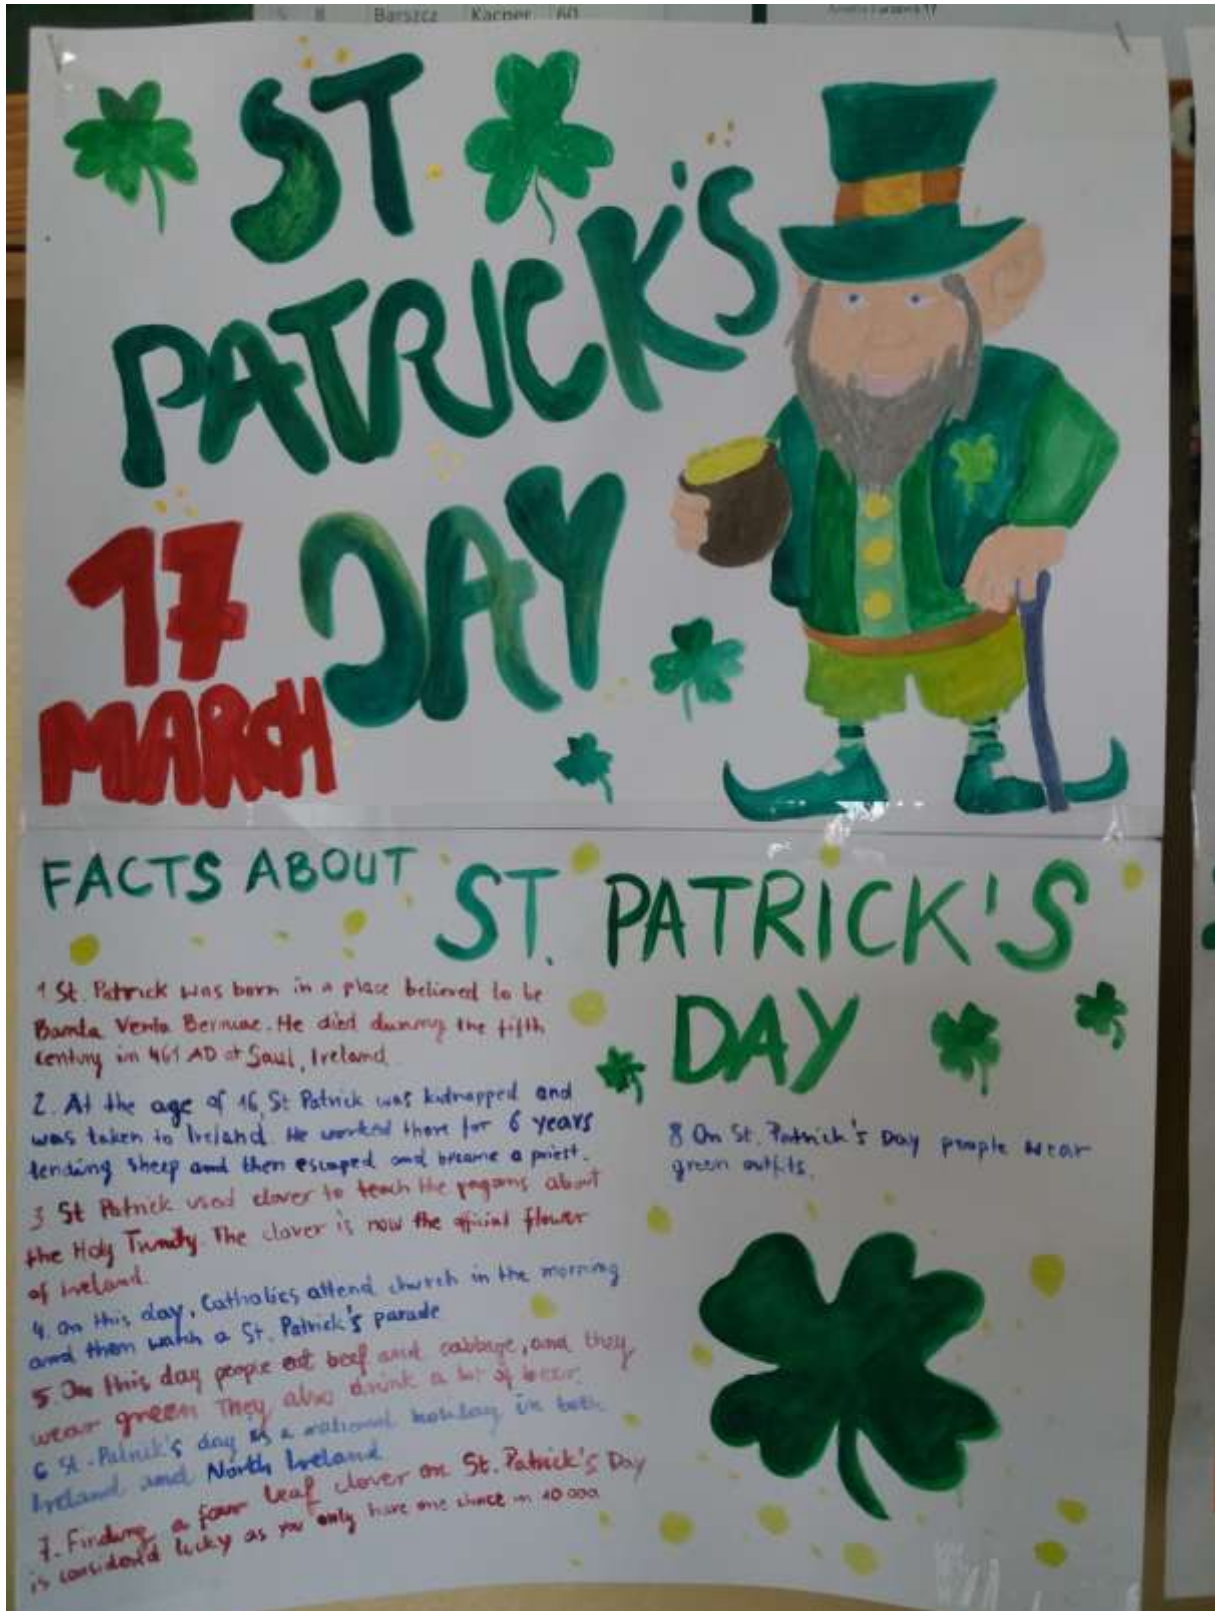 5 8 Barszcz Kacper 60
ST
PATRICK'S
DAY
17
MARCH
FACTS ABOUT ST. PATRICK'S
DAY
1 St. Patrick was born in a place believed to be
Banda Venta Berniae. He died during the fifth
century in 461 AD at Saul, Ireland.
2. At the age of 16, St Patrick was kidnapped and
was taken to Ireland. He worked there for 6 years
tending sheep and then escaped and became a priest.
3 St Patrick used clover to teach the pagans about
the Holy Trinity. The clover is now the official flower
of Ireland.
4. On this day, Catholics attend church in the morning
and then watch a St. Patrick's parade
5. On this day people eat beef and cabbage, and they
wear green They also drink a lot of beer.
6 St. Patrick's day is a national holiday in both
Ireland and North Ireland
7. Finding a four leaf clover on St. Patrick's Day
is considered lucky as you only have one chance in 10 000
8 On St. Patrick's Day people wear
green outfits.